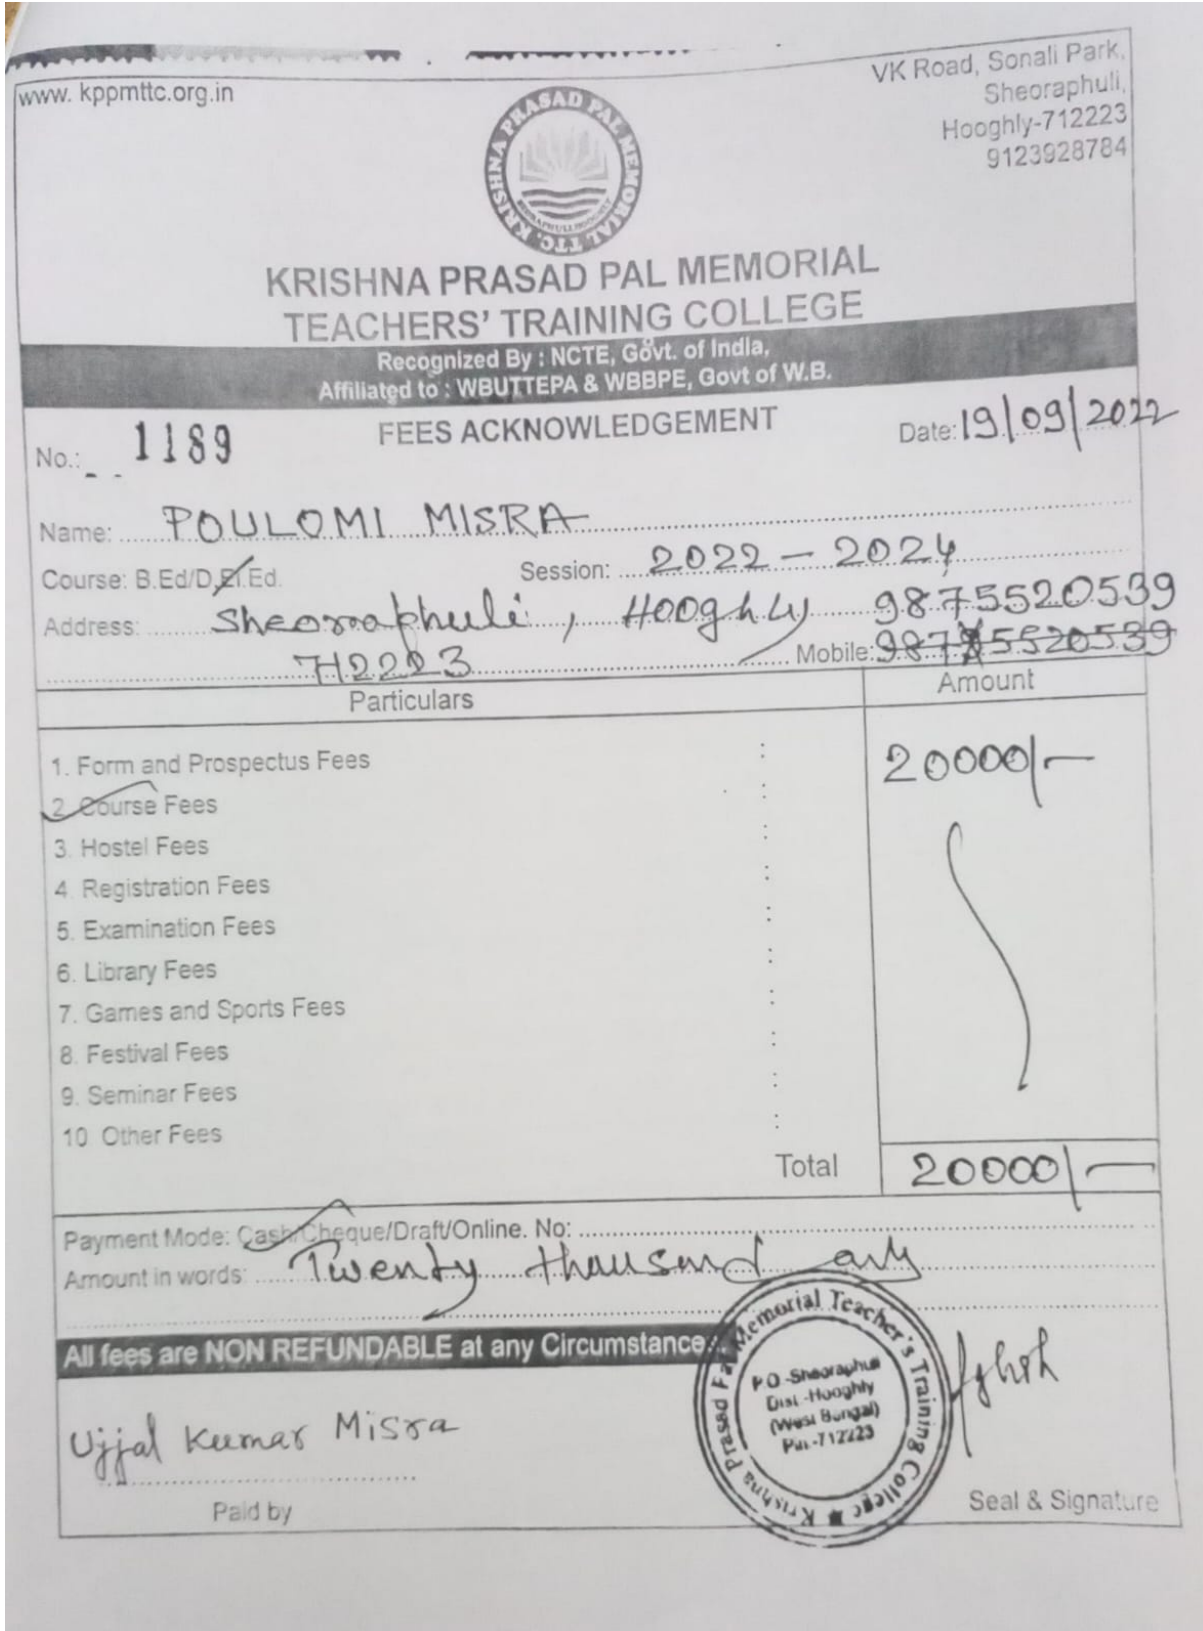 www. kppmttc.org.in
VK Road, Sonali Park,
Sheoraphuli,
Hooghly-712223
9123928784
KRISHNA PRASAD PAL MEMORIAL TTC.
SHEORAPHULI, HOOGHLY
KRISHNA PRASAD PAL MEMORIAL
TEACHERS' TRAINING COLLEGE
Recognized By : NCTE, Govt. of India,
Affiliated to : WBUTTEPA & WBBPE, Govt of W.B.
FEES ACKNOWLEDGEMENT
No.: 1189
Date: 19/09/2022
Name: POULOMI MISRA
Course: B.Ed/D.El.Ed.
Session: 2022 - 2024
Address: Sheoraphuli, Hooghly 9875520539
712223 Mobile: 9875520539
Particulars Amount
1. Form and Prospectus Fees : 20000/-
2. Course Fees :
3. Hostel Fees :
4. Registration Fees :
5. Examination Fees :
6. Library Fees :
7. Games and Sports Fees :
8. Festival Fees :
9. Seminar Fees :
10 Other Fees :
Total 20000/-
Payment Mode: Cash/Cheque/Draft/Online. No:
Amount in words: Twenty thausand only
All fees are NON REFUNDABLE at any Circumstance
Krishna Prasad Pal Memorial Teacher's Training College
P.O -Sheoraphuli
Dist.-Hooghly
(West Bengal)
Pin-712223
Ujjal Kumar Misra
Paid by
Seal & Signature